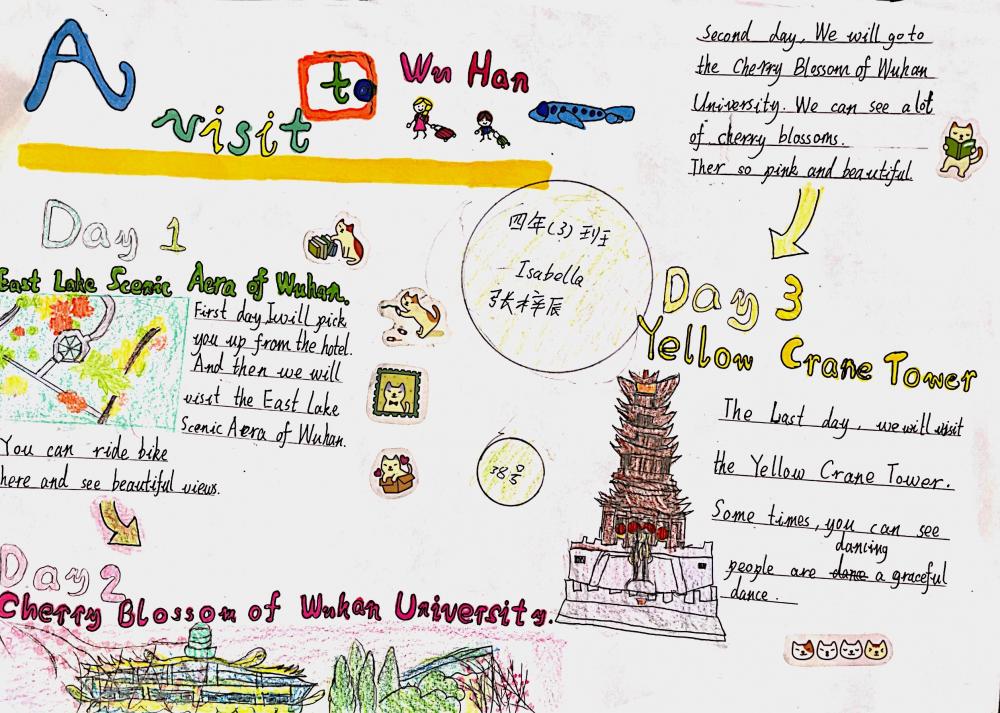 A visit to Wu Han
Day 1
East Lake Scenic Aera of Wuhan.
First day,I will pick
you up from the hotel.
And then we will
visit the East Lake
Scenic Aera of Wuhan.
You can ride bike
here and see beautiful views.
Day 2
Cherry Blossom of Wuhan University.
second day, We will go to
the Cherry Blossom of Wuhan
University. We can see a lot
of cherry blossoms.
Ther so pink and beautiful.
四年(3)班
Isabella
张梓辰
38号
Day 3
Yellow Crane Tower
The Last day, we will visit
the Yellow Crane Tower.
Some times, you can see
dancing
people are dance a graceful
dance.